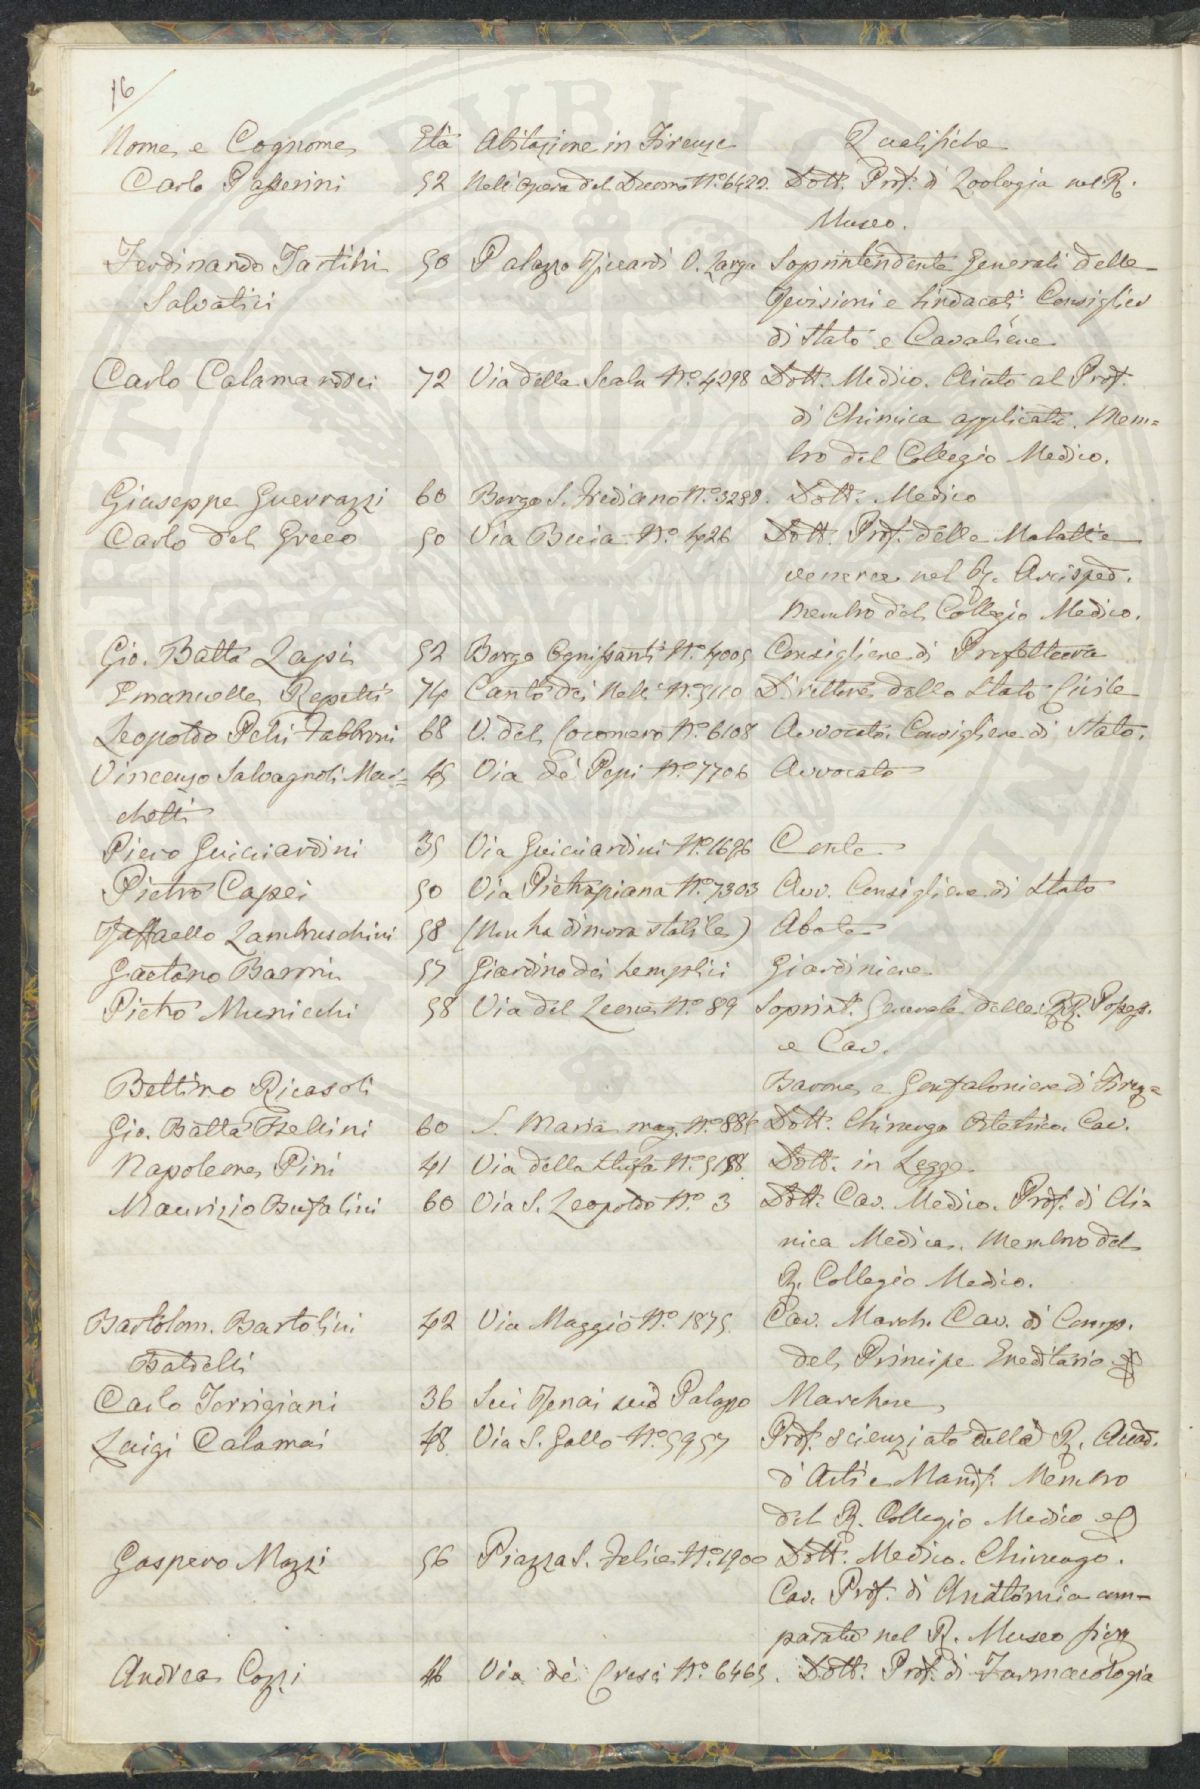 16
Nome e Cognome Età Abitazione in Firenze Qualifiche
Carlo Passerini 52 Nell'Opera del Duomo N.º 6422. Dott. Prof. di Zoologia nel R.
Museo.
Ferdinando Tartini 50 Palazzo Riccardi V. Larga Soprintendente Generali delle
Salvatici Revisioni e Sindacati Consiglier
di Stato e Cavaliere
Carlo Calamandrei 72 Via della Scala N.º 4298 Dott. Medico. Aiuto al Prof.
di Chimica applicata. Mem=
bro del Collegio Medico.
Giuseppe Guerrazzi 60 Borgo S. Frediano N.º 3298. Dott. Medico
Carlo del Greco 50 Via Buia N.º 426 Dott. Prof. delle Malattie
veneree nel R. Arcisped.
Membro del Collegio Medico.
Gio. Batta Lapi 52 Borgo Ognissanti N.º 4005 Consigliere di Prefettura
Emanuelle Repetti 74 Canto dei Nelli N.º 5110 Direttore dello Stato Civile
Leopoldo Pelli Fabbroni 68 V. del Cocomero N.º 6108 Avvocato. Consigliere di Stato.
Vincenzo Salvagnoli Mar= 45 Via de' Pepi N.º 7706 Avvocato
chetti
Piero Guicciardini 35 Via Guicciardini N.º 1696 Conte
Pietro Capei 50 Via Pietrapiana N.º 7303 Avv. Consigliere di Stato
Raffaello Lambruschini 58 (Non ha dimora stabile) Abate
Gaetano Baroni 57 Giardino dei Semplici Giardiniere
Pietro Municchi 58 Via del Leone N.º 89 Soprint. Generale delle RR. Posses.
e Cav.
Bettino Ricasoli Barone e Gonfaloniere di Firen=
Gio. Batta Bellini 60 S. Maria mag. N.º 884 Dott. Chirurgo Ostetrico. Cav.
Napoleone Pini 41 Via della Stufa N.º Dott. in Legge
Maurizio Bufalini 60 Via S. Leopoldo N.º 3 Dott. Cav. Medico. Prof. di Cli=
nica Medica. Membro del
R. Collegio Medico.
Bartolom. Bartolini 42 Via Maggio N.º 1875. Cav. March. Cav. di Comp.
Baldelli del Principe Ereditario
Carlo Torrigiani 36 Sui Renai suo Palazzo Marchese
Luigi Calamai 48 Via S. Gallo N.º 5957 Prof. scienziato della R. Accad.
d'Arti e Manif. Membro
del R. Collegio Medico
Gaspero Mazzi 56 Piazza S. Felice N.º 1900 Dott. Medico. Chirurgo.
Cav. Prof. di Anatomia com=
parata nel R. Museo
Andrea Cozzi 46 Via de' Cresci N.º 6465. Dott. Prof. di Farmacologia